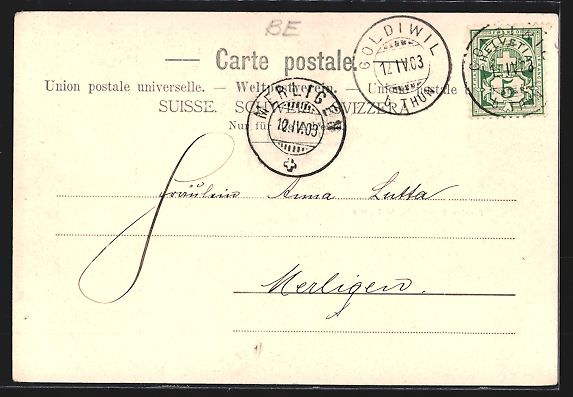 BE
— Carte postale. —
Union postale universelle. — Weltpostverein. — Unione postale
SUISSE. SCHWEIZ. SVIZZERA.
Nur für
GOLDIWIL
12 IV.03
(THUN)
MERLIGEN
12.IV.03
HELVETIA
5
Fräulein Anna Lutta
Merligen.